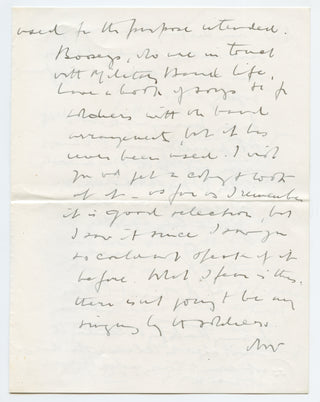 used for the purpose intended.
Booseys, who are in touch
with Military Band life,
have a book of songs &c for
soldiers with the band
arrangements, but it has
never been used. I wish
you wd get a copy & look
at it — as far as I remember
it is good selection, but
I saw it since I saw you
so could not speak of it
before. What I fear is this.
there isnt going to be any
singing by the soldiers